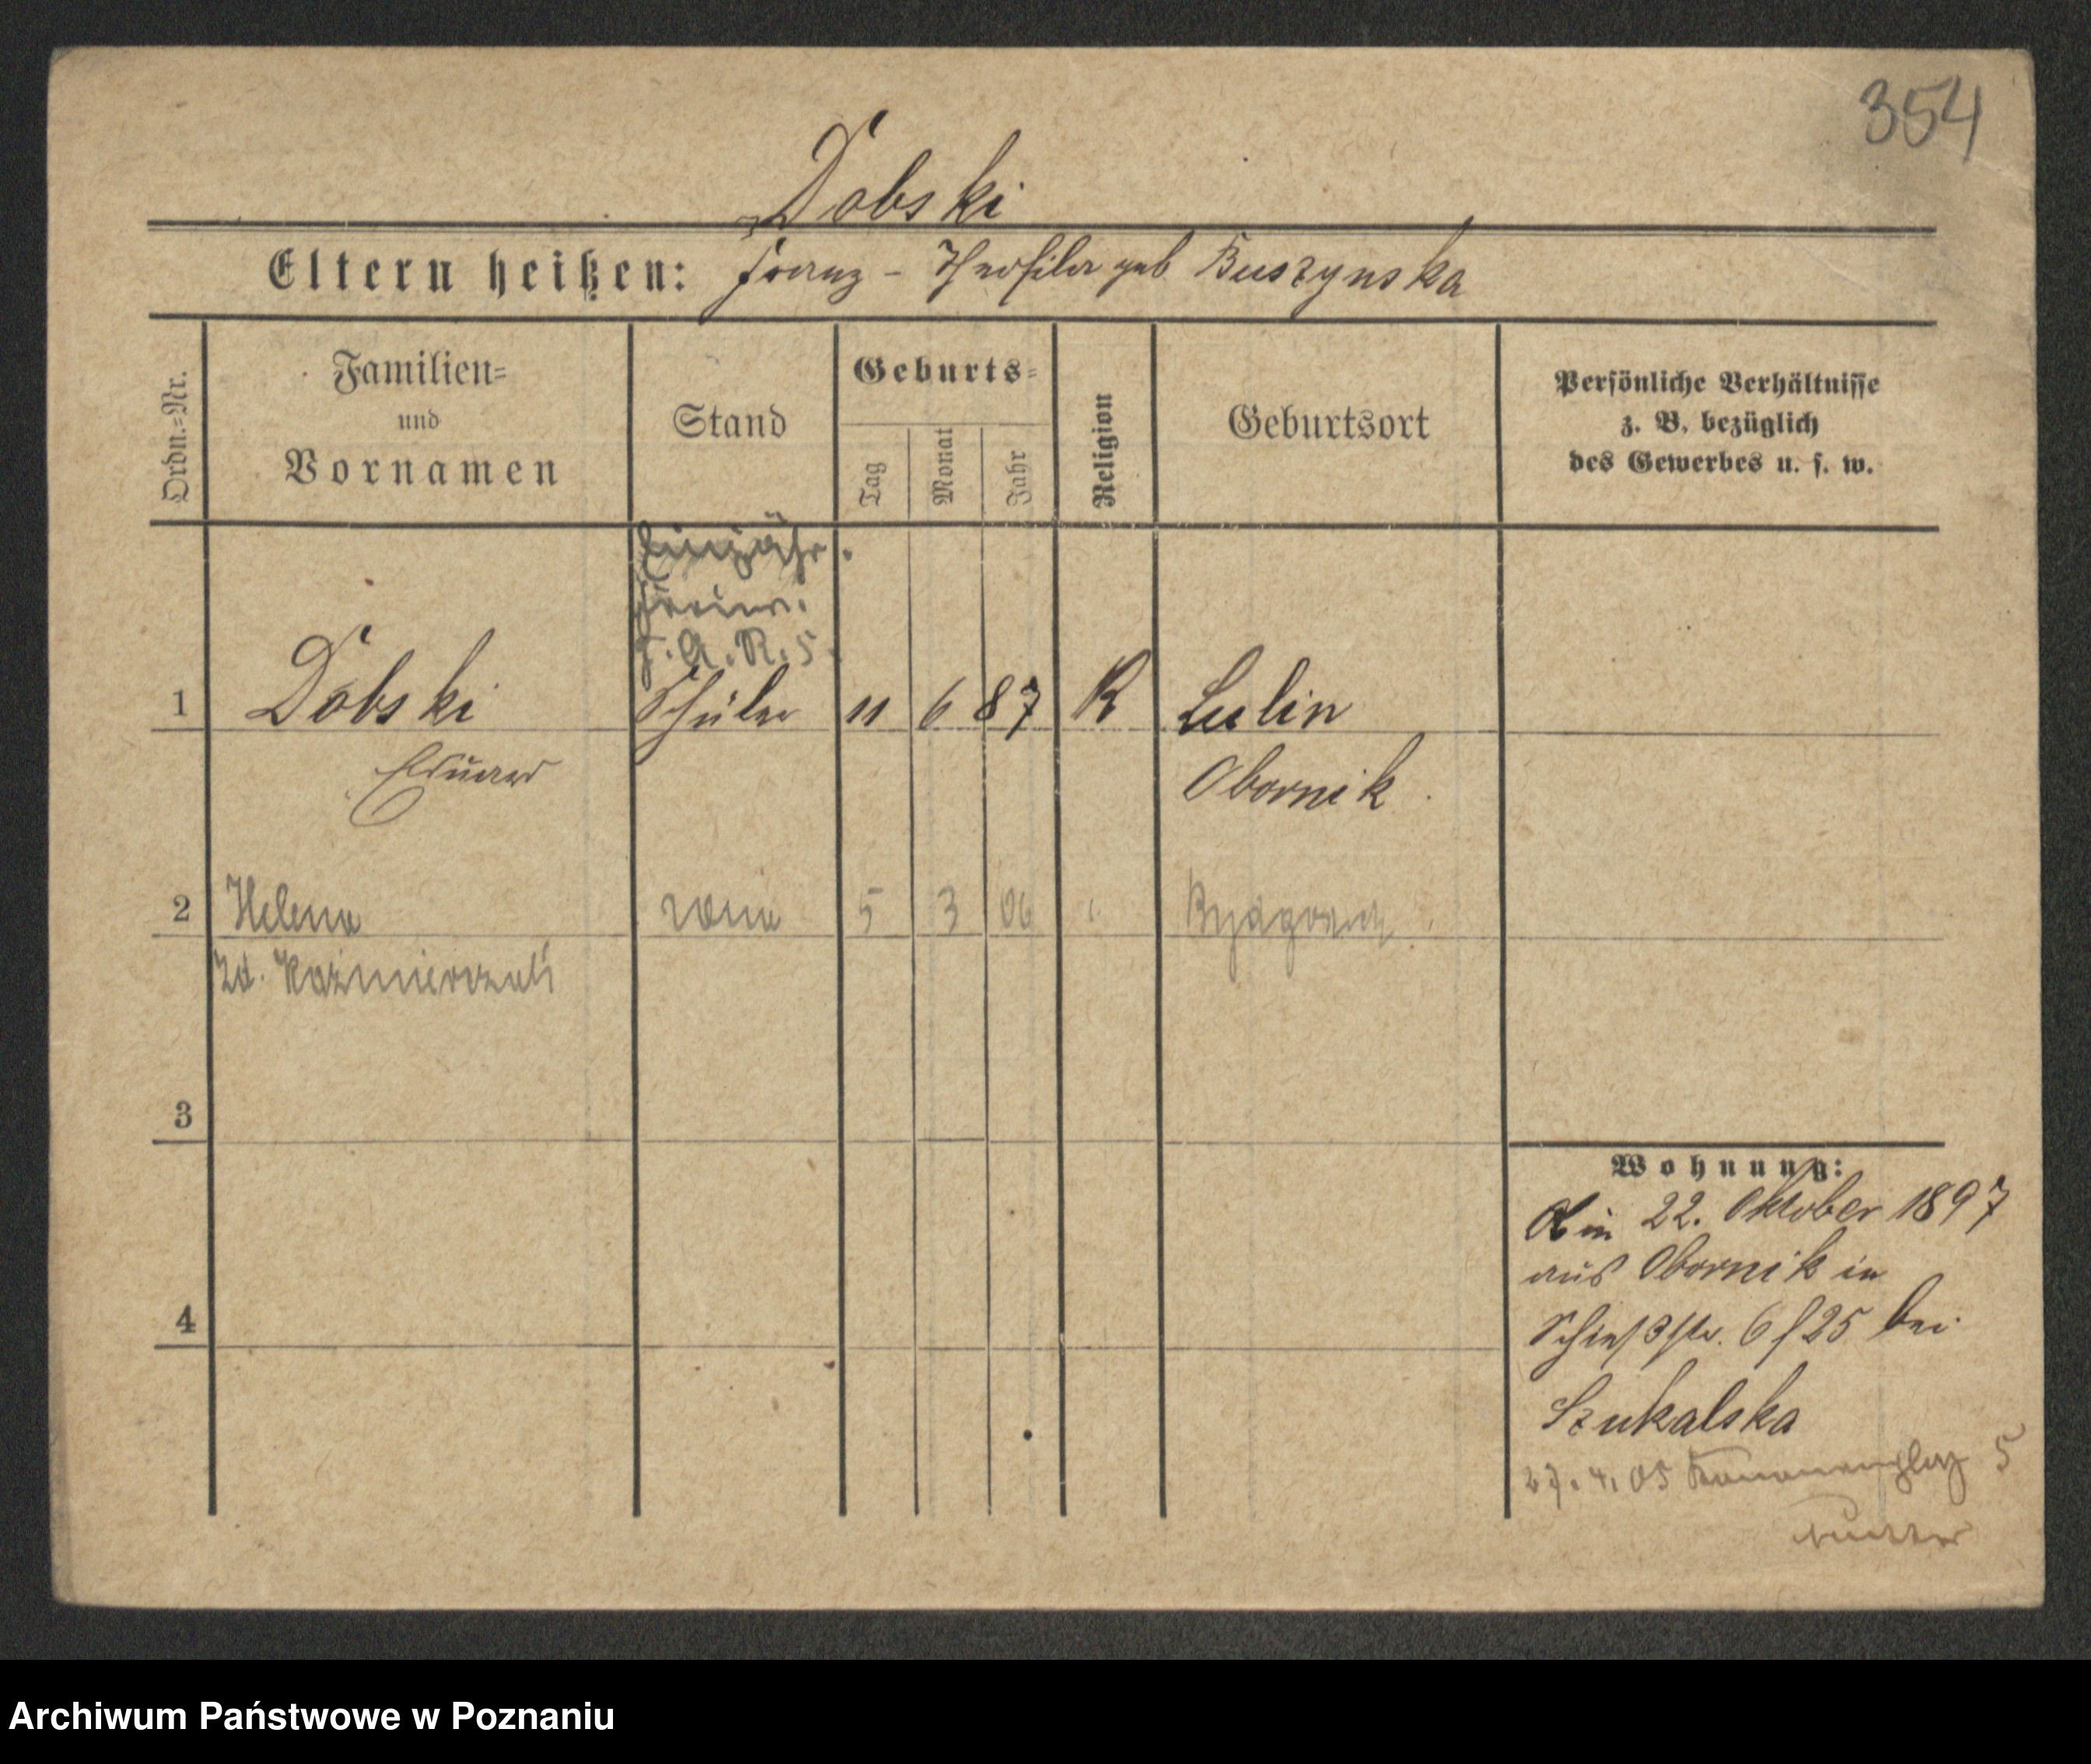 354
Dobski
Eltern heißen: Franz - Theofila geb Buszynska
Ordn.=Nr.
Familien=
und
Vornamen
Stand
Geburts=
Tag
Monat
Jahr
Religion
Geburtsort
Persönliche Verhältnisse
z. B. bezüglich
des Gewerbes u. s. w.
Einjähr.
Freiw.
F. A. R. 5.
1 Dobski Schüler 11 6 87 R Lulin
Eduard Obornik
2 Helena żona 5 3 06
zd. Kaźmierczak
3
4
Wohnung:
Am 22. Oktober 1897
aus Obornik in
Schießstr. 6 f 25 bei
Szukalska
27. 4. 05 5